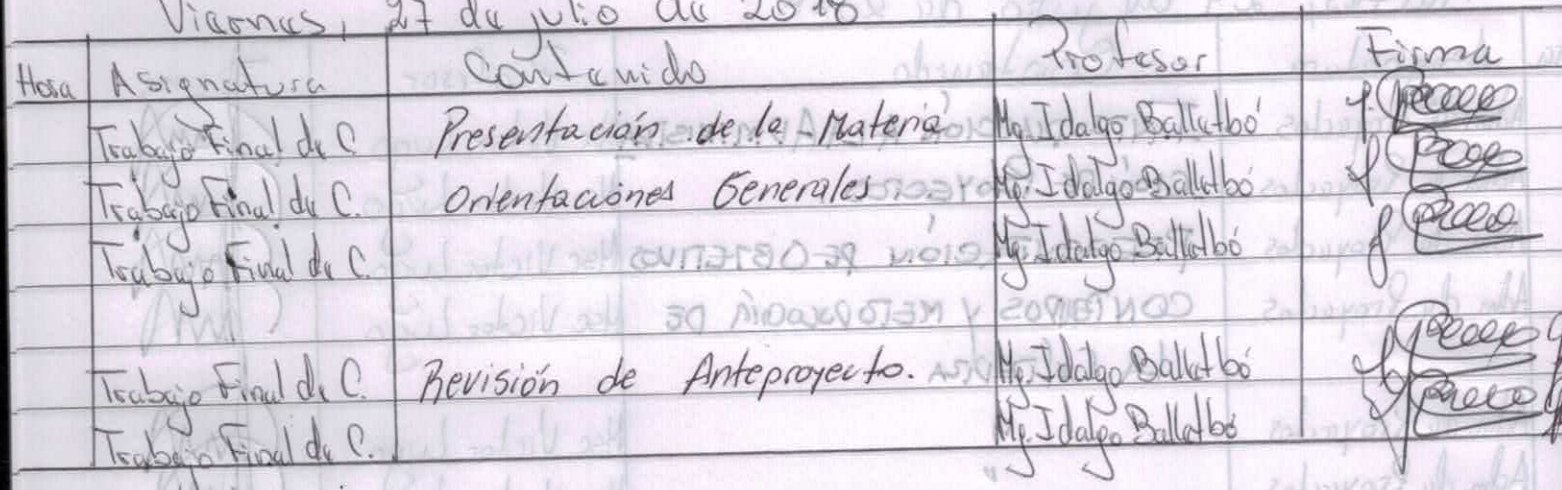 Viernes, 27 de julio de 2018
Hora Asignatura Contenido Profesor Firma
Trabajo Final de C. Presentación de la Materia Mg. Idalgo Ballutbó
Trabajo Final de C. Orientaciones Generales Mg. Idalgo Ballutbó
Trabajo Final de C. Mg. Idalgo Ballutbó
Trabajo Final de C. Revisión de Anteproyecto. Mg. Idalgo Ballutbó
Trabajo Final de C. Mg. Idalgo Ballutbó